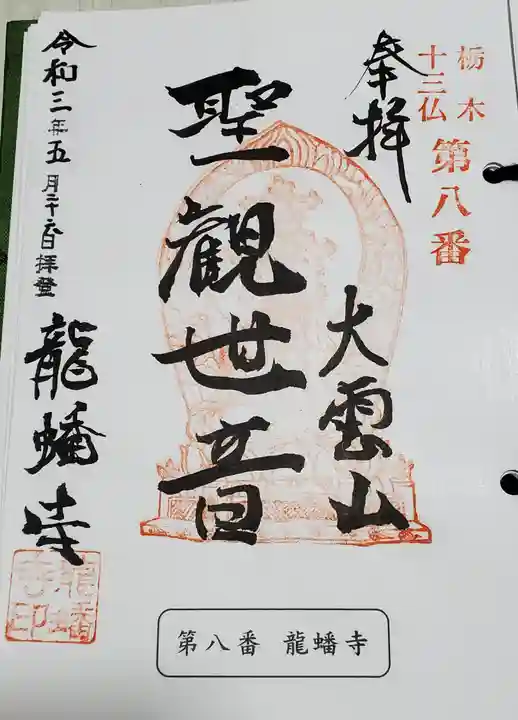 栃木
十三仏
第八番
奉拝
大雲山
聖観世音
令和三年五月二十六日拝登
龍蟠寺
龍蟠寺印
第八番 龍蟠寺